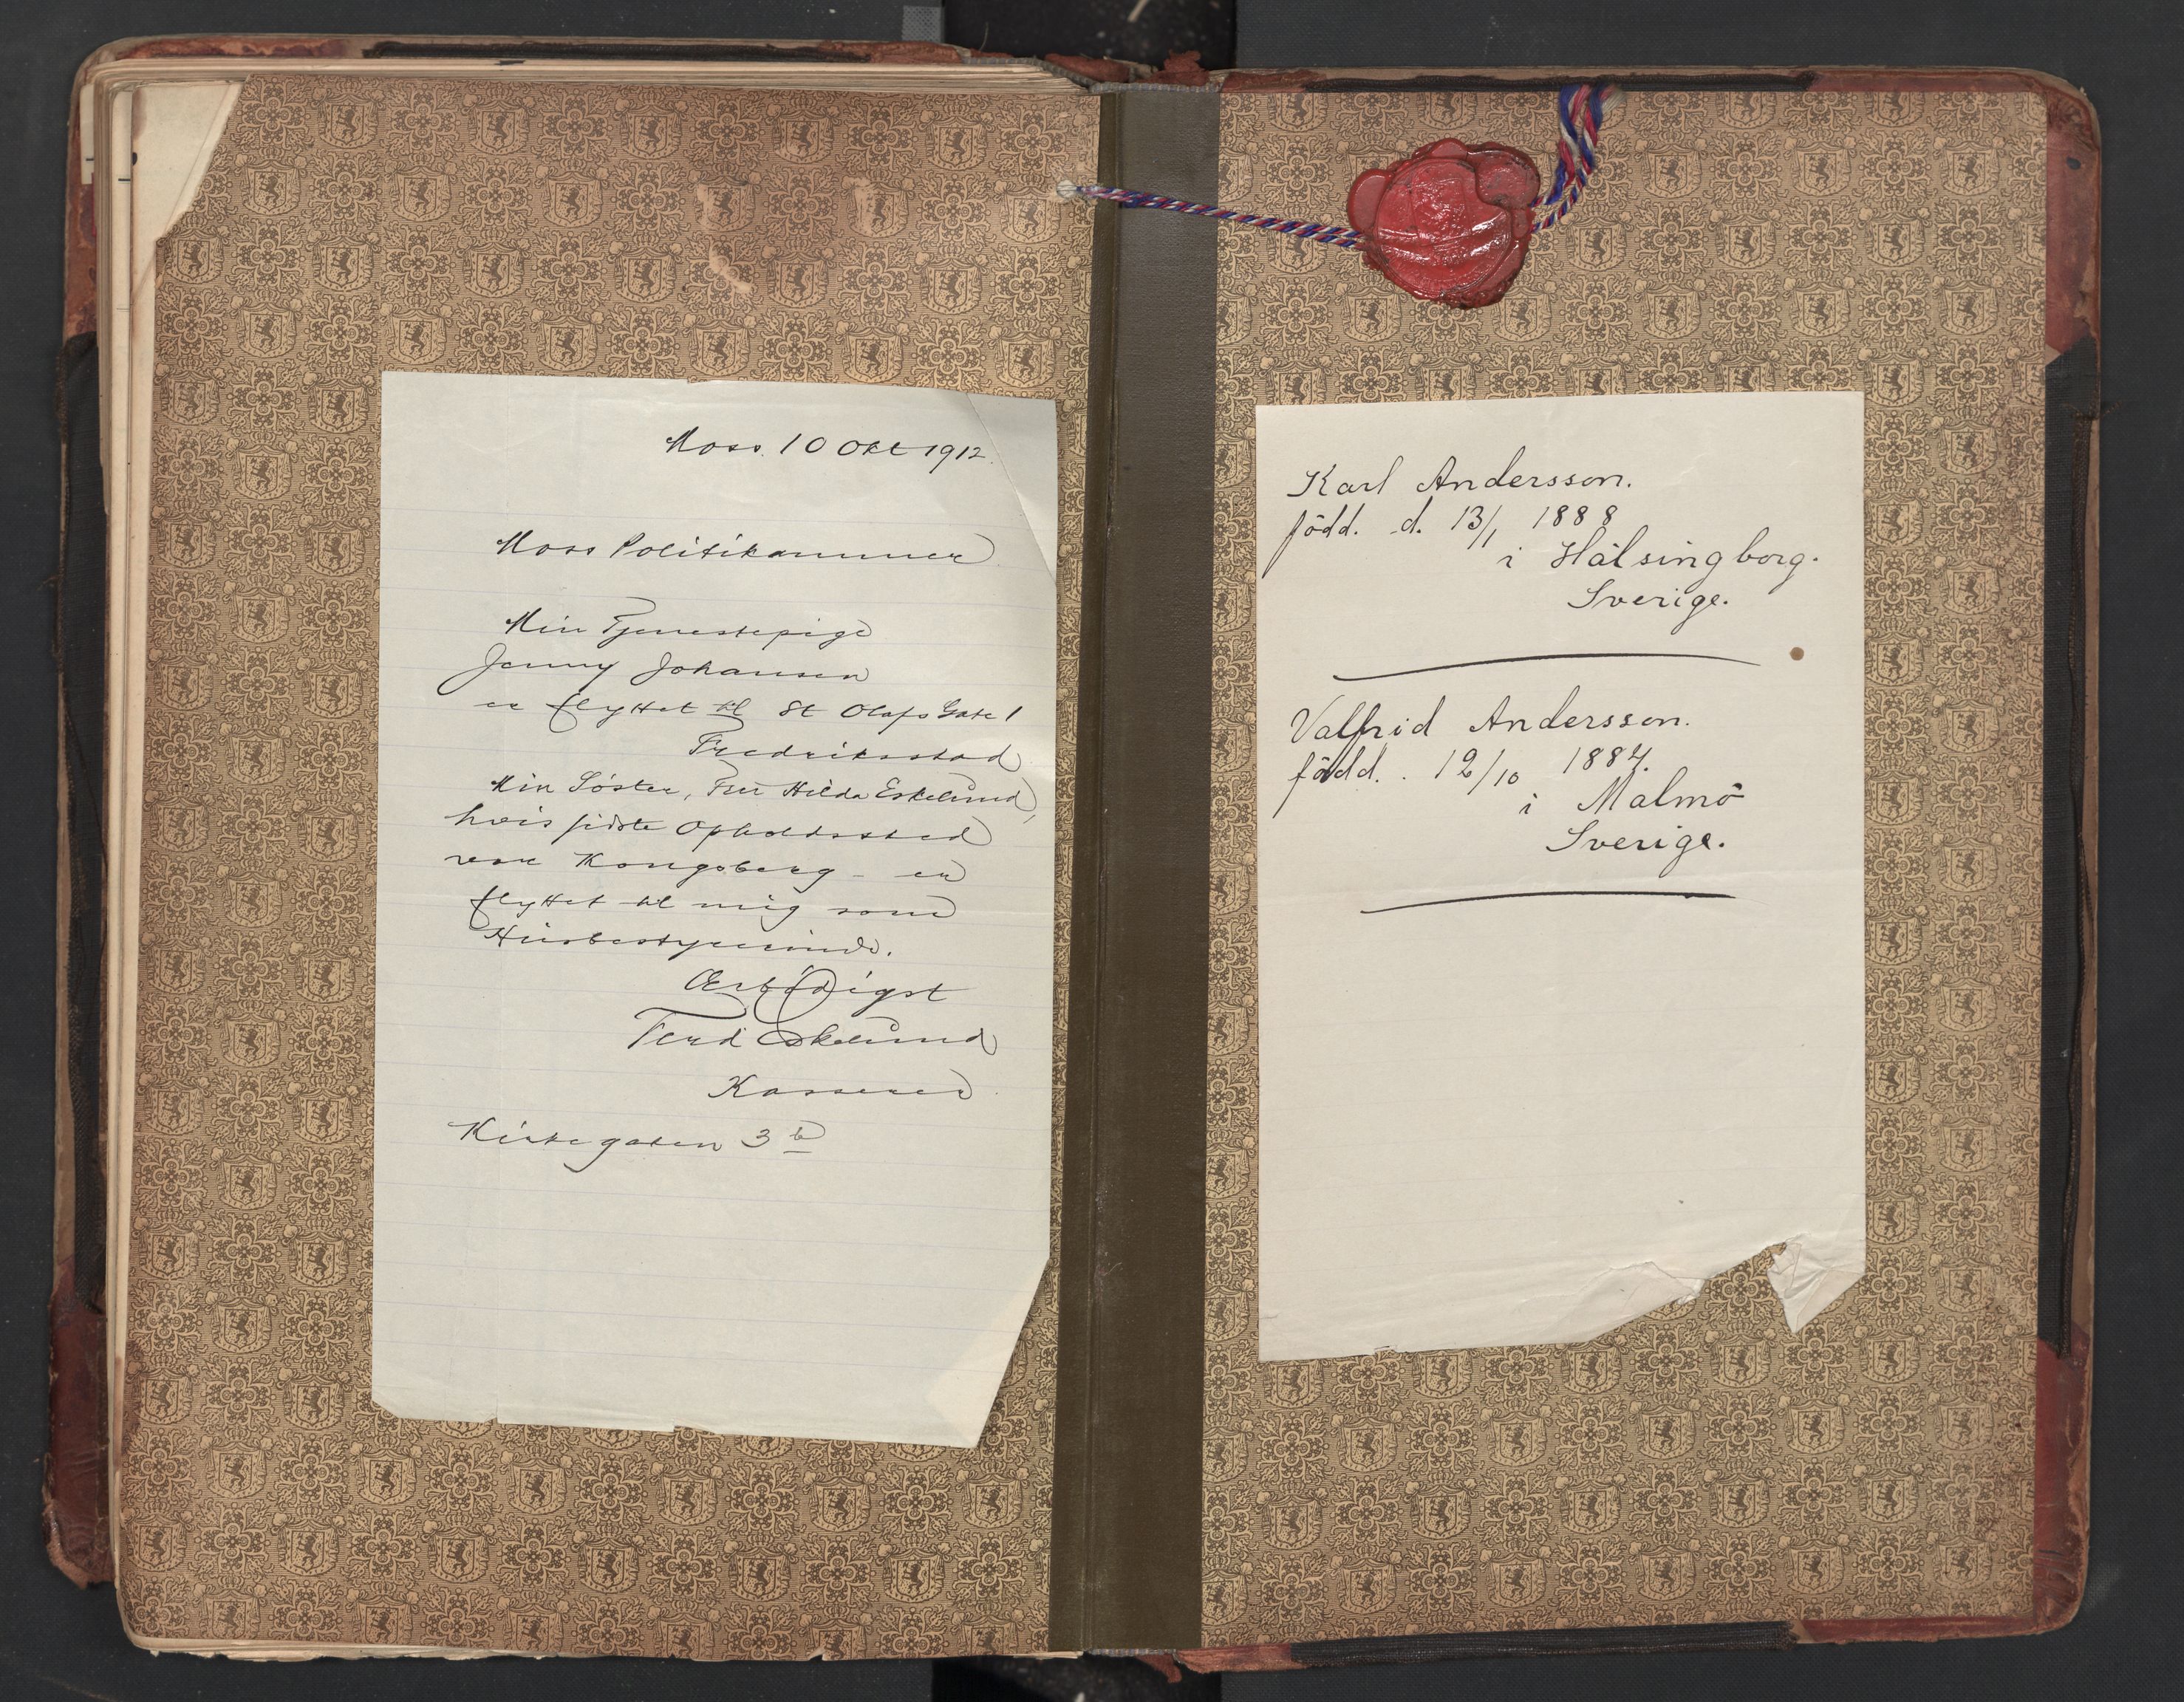 Moss. 10 Okt 1912.
Moss Politikammer
Min Tjenestepige
Jenny Johansen
er flyttet til St Olafs Gate 1
Fredriksstad
Min Søster, Fru Hilda Eskelund,
hvis sidste Opholdssted
var Kongsberg - er
flyttet til mig som
Husbestyrerinde.
Ærbødigst
Ferd Eskelund
Kasserer
Kirkegaten 3 b
Karl Andersson.
född. d. 13/1 1888
i Hälsingborg.
Sverige.
Valfrid Andersson.
född. . 12/10 1884.
i Malmö
Sverige.